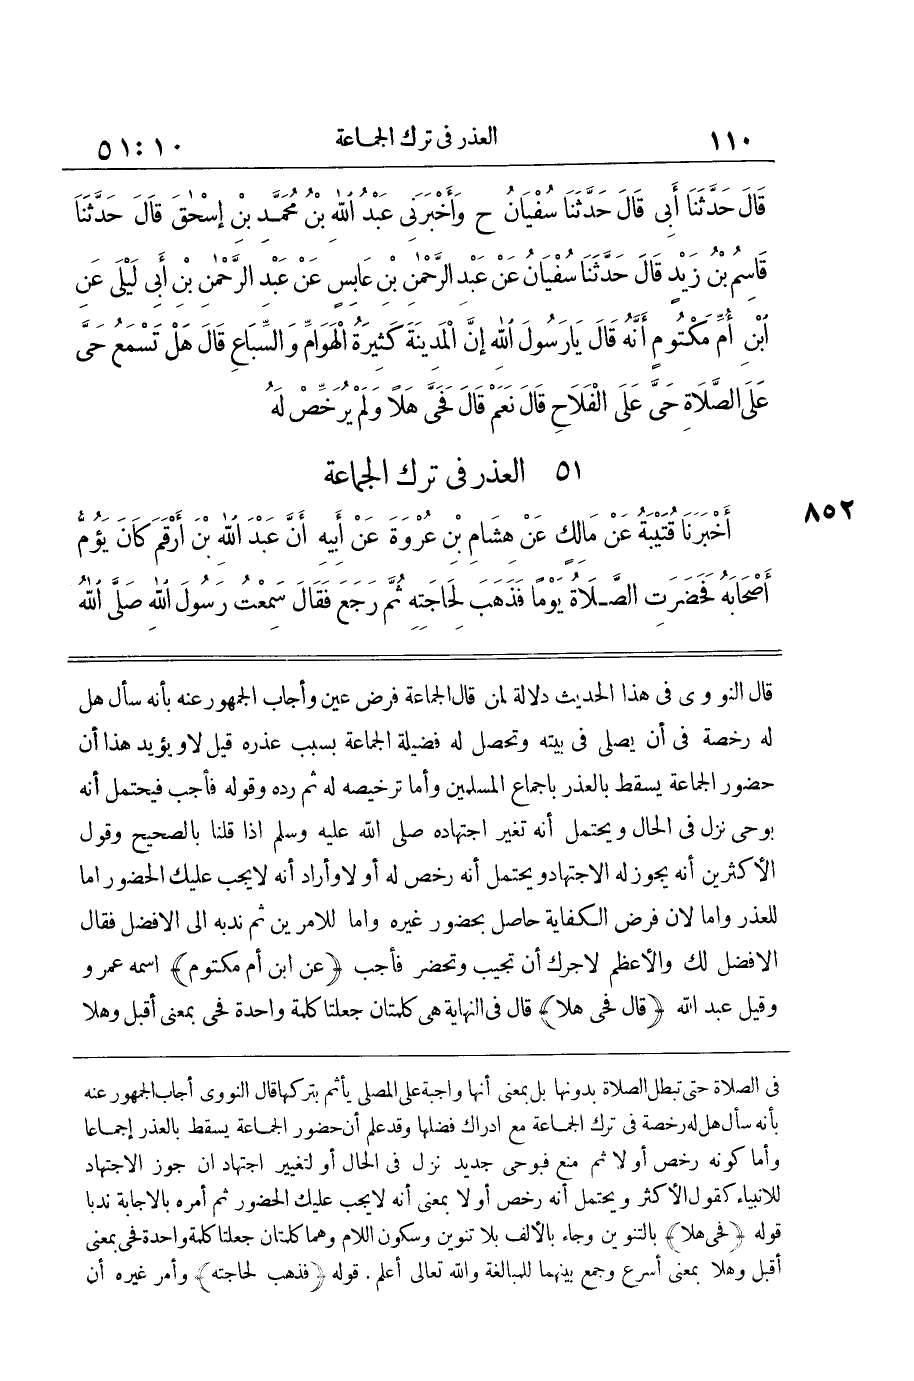 ١١٠ العذر فى ترك الجماعة ٥١:١٠
قَالَ حَدَّثَنَا أَبِى قَالَ حَدَّثَنَا سُفْيَانُ ح وَأَخْبَرَنِى عَبْدُ اللهِ بْنُ مُحَمَّدِ بْنِ إِسْحٰقَ قَالَ حَدَّثَنَا
قَاسِمُ بْنُ زَيْدٍ قَالَ حَدَّثَنَا سُفْيَانُ عَنْ عَبْدِ الرَّحْمٰنِ بْنِ عَابِسٍ عَنْ عَبْدِ الرَّحْمٰنِ بْنِ أَبِى لَيْلَى عَنِ
ابْنِ أُمِّ مَكْتُومٍ أَنَّهُ قَالَ يَارَسُولَ اللهِ إِنَّ الْمَدِينَةَ كَثِيرَةُ الْهَوَامِّ وَالسِّبَاعِ قَالَ هَلْ تَسْمَعُ حَىَّ
عَلَى الصَّلَاةِ حَىَّ عَلَى الْفَلَاحِ قَالَ نَعَمْ قَالَ فَحَىَّ هَلًا وَلَمْ يُرَخِّصْ لَهُ
٥١ العذر فى ترك الجماعة
أَخْبَرَنَا قُتَيْبَةُ عَنْ مَالِكٍ عَنْ هِشَامِ بْنِ عُرْوَةَ عَنْ أَبِيهِ أَنَّ عَبْدَ اللهِ بْنَ أَرْقَمَ كَانَ يَؤُمُّ ٨٥٢
أَصْحَابَهُ فَحَضَرَتِ الصَّلَاةُ يَوْمًا فَذَهَبَ لِحَاجَتِهِ ثُمَّ رَجَعَ فَقَالَ سَمِعْتُ رَسُولَ اللهِ صَلَّى اللهُ
قال النووى فى هذا الحديث دلالة لمن قال الجماعة فرض عين وأجاب الجمهور عنه بأنه سأل هل
له رخصة فى أن يصلى فى بيته وتحصل له فضيلة الجماعة بسبب عذره قيل لا ويؤيد هذا أن
حضور الجماعة يسقط بالعذر باجماع المسلمين وأما ترخيصه له ثم رده وقوله فأجب فيحتمل أنه
بوحى نزل فى الحال ويحتمل أنه تغير اجتهاده صلى الله عليه وسلم اذا قلنا بالصحيح وقول
الأكثرين أنه يجوز له الاجتهاد ويحتمل أنه رخص له أولا وأراد أنه لايجب عليك الحضور اما
للعذر واما لان فرض الكفاية حاصل بحضور غيره واما للامرين ثم ندبه الى الافضل فقال
الافضل لك والأعظم لاجرك أن تجيب وتحضر فأجب ﴿عن ابن أم مكتوم﴾ اسمه عمرو
وقيل عبد الله ﴿قال فحى هلا﴾ قال فى النهاية هى كلمتان جعلتا كلمة واحدة فحى بمعنى أقبل وهلا
فى الصلاة حتى تبطل الصلاة بدونها بل بمعنى أنها واجبة على المصلى يأثم بتركها قال النووى أجاب الجمهور عنه
بأنه سأل هل له رخصة فى ترك الجماعة مع ادراك فضلها وقد علم أن حضور الجماعة يسقط بالعذر إجماعا
وأما كونه رخص أولا ثم منع فبوحى جديد نزل فى الحال أو لتغيير اجتهاد ان جوز الاجتهاد
للانبياء كقول الأكثر ويحتمل أنه رخص أولا بمعنى أنه لايجب عليك الحضور ثم أمره بالاجابة ندبا
قوله ﴿فحى هلا﴾ بالتنوين وجاء بالألف بلا تنوين وسكون اللام وهما كلمتان جعلتا كلمة واحدة فحى بمعنى
أقبل وهلا بمعنى أسرع وجمع بينهما للمبالغة والله تعالى أعلم. قوله ﴿فذهب لحاجته﴾ وأمر غيره أن